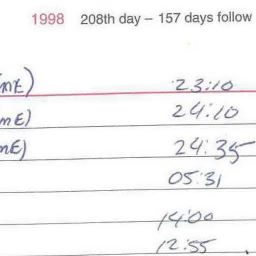 1998 208th day – 157 days follow
ME) 23:10
ME) 24:10
ME) 24:35
05:31
14:00
12:55